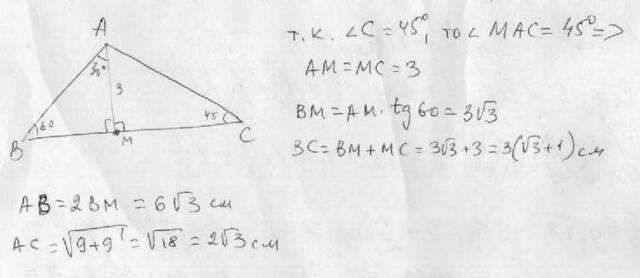 A
30°
3
60
45
B
M
C
т.к. ∠C = 45°, то ∠MAC = 45° =>
AM = MC = 3
BM = AM · tg 60 = 3√3
BC = BM + MC = 3√3 + 3 = 3(√3 + 1) см
AB = 2BM = 6√3 см
AC = √9+9 = √18 = 2√3 см